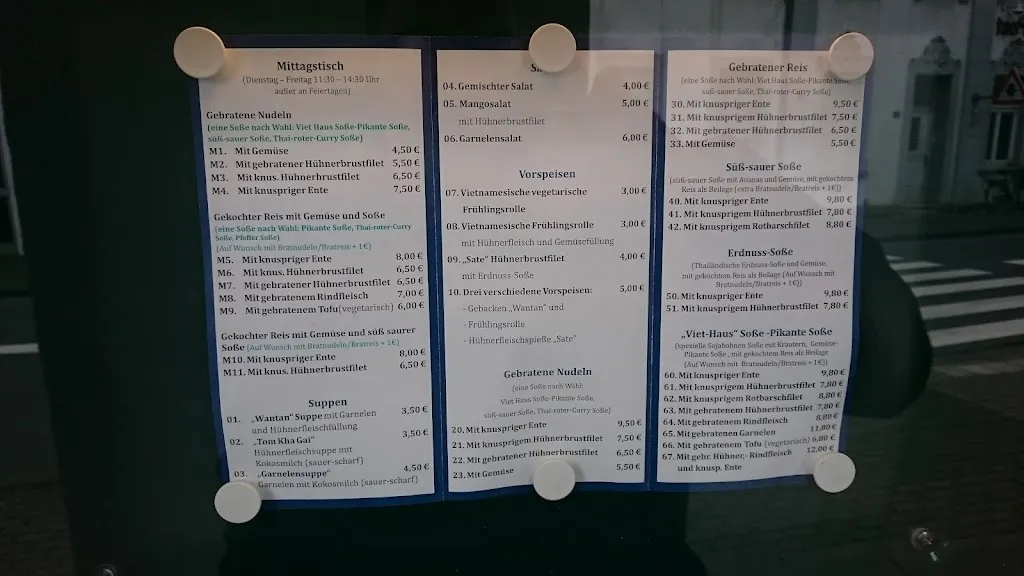 Mittagstisch
(Dienstag – Freitag 11:30 – 14:30 Uhr
außer an Feiertagen)
Gebratene Nudeln
(eine Soße nach Wahl: Viet Haus Soße-Pikante Soße,
süß-sauer Soße, Thai-roter-Curry Soße)
M1. Mit Gemüse 4,50 €
M2. Mit gebratener Hühnerbrustfilet 5,50 €
M3. Mit knus. Hühnerbrustfilet 6,50 €
M4. Mit knuspriger Ente 7,50 €
Gekochter Reis mit Gemüse und Soße
(eine Soße nach Wahl: Pikante Soße, Thai-roter-Curry
Soße, Pfeffer Soße)
(Auf Wunsch mit Bratnudeln/Bratreis + 1€)
M5. Mit knuspriger Ente 8,00 €
M6. Mit knus. Hühnerbrustfilet 6,50 €
M7. Mit gebratener Hühnerbrustfilet 6,50 €
M8. Mit gebratenem Rindfleisch 7,00 €
M9. Mit gebratenem Tofu(vegetarisch) 6,00 €
Gekochter Reis mit Gemüse und süß saurer
Soße (Auf Wunsch mit Bratnudeln/Bratreis + 1€)
M10. Mit knuspriger Ente 8,00 €
M11. Mit knus. Hühnerbrustfilet 6,50 €
Suppen
01. „Wantan“ Suppe mit Garnelen 3,50 €
und Hühnerfleischfüllung
02. „Tom Kha Gai“ 3,50 €
Hühnerfleischsuppe mit
Kokosmilch (sauer-scharf)
03. „Garnelensuppe“ 4,50 €
Garnelen mit Kokosmilch (sauer-scharf)
04. Gemischter Salat 4,00 €
05. Mangosalat 5,00 €
mit Hühnerbrustfilet
06. Garnelensalat 6,00 €
Vorspeisen
07. Vietnamesische vegetarische 3,00 €
Frühlingsrolle
08. Vietnamesische Frühlingsrolle 3,00 €
mit Hühnerfleisch und Gemüsefüllung
09. „Sate“ Hühnerbrustfilet 4,00 €
mit Erdnuss-Soße
10. Drei verschiedene Vorspeisen: 5,00 €
- Gebacken „Wantan“ und
- Frühlingsrolle
- Hühnerfleischspieße „Sate“
Gebratene Nudeln
(eine Soße nach Wahl:
Viet Haus Soße-Pikante Soße,
süß-sauer Soße, Thai-roter-Curry Soße)
20. Mit knuspriger Ente 9,50 €
21. Mit knusprigem Hühnerbrustfilet 7,50 €
22. Mit gebratener Hühnerbrustfilet 6,50 €
23. Mit Gemüse 5,50 €
Gebratener Reis
(eine Soße nach Wahl: Viet Haus Soße-Pikante Soße,
süß-sauer Soße, Thai-roter-Curry Soße)
30. Mit knuspriger Ente 9,50 €
31. Mit knusprigem Hühnerbrustfilet 7,50 €
32. Mit gebratener Hühnerbrustfilet 6,50 €
33. Mit Gemüse 5,50 €
Süß-sauer Soße
(süß-sauer Soße mit Ananas und Gemüse, mit gekochtem
Reis als Beilage (extra Bratnudeln/Bratreis + 1€))
40. Mit knuspriger Ente 9,80 €
41. Mit knusprigem Hühnerbrustfilet 7,80 €
42. Mit knusprigem Rotbarschfilet 8,80 €
Erdnuss-Soße
(Thailändische Erdnuss-Soße und Gemüse,
mit gekochtem Reis als Beilage (Auf Wunsch mit
Bratnudeln/Bratreis + 1€))
50. Mit knuspriger Ente 9,80 €
51. Mit knusprigem Hühnerbrustfilet 7,80 €
„Viet-Haus“ Soße -Pikante Soße
(spezielle Sojabohnen Soße mit Kräutern, Gemüse-
Pikante Soße , mit gekochtem Reis als Beilage
(Auf Wunsch mit Bratnudeln/Bratreis + 1€))
60. Mit knuspriger Ente 9,80 €
61. Mit knusprigem Hühnerbrustfilet 7,80 €
62. Mit knusprigem Rotbarschfilet 8,80 €
63. Mit gebratenem Hühnerbrustfilet 7,80 €
64. Mit gebratenem Rindfleisch 8,80 €
65. Mit gebratenen Garnelen 11,80 €
66. Mit gebratenem Tofu (vegetarisch) 6,80 €
67. Mit gebr. Hühner,- Rindfleisch 12,00 €
und knusp. Ente